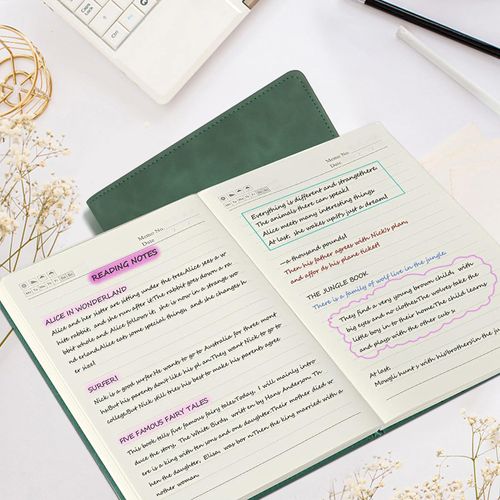 Caps Lock
Shift
Ctrl
Memo No.
Date
READING NOTES
ALICE IN WONDERLAND
Alice and her sister are sitting under the tree.Alice sees a w
hite rabbit, and she run after it.The rabbit goes down a ra
bbit whole and Alice follows it. she is now in a strange wo
nd erland.Alice eats some special things and she changes h
er size!
SURFER!
Nick is a good surfer.He wants to go to Australia for three mont
hs.But his parents don't like his plan.They want Nick to go to
college.But Nick still tries his best to make his parents agree
FIVE FAMOUS FAIRY TALES
This book tells five famous fairy tales.Today, I will mainly intro
duce the story, The White Birds, writt en by Hans Anderson. Th
ere is a king with ten sons and one daughter.Their mother died w
hen the daughter, Elisa, was bor n.Then the king married with a
nother woman
Memo No.
Date
Everything is different and strangethere.
The animals there can speak!
Alice meet many interesting things
At last, she wakes upIt's just a dream!
—a thousand pounds!
Then his father agree with Nick's plan,
and offor as his plane ticket!
THE JUNGLE BOOK
There is a family of wolf live in the jungle.
They find a very young brown child with
big eyes and no clothes.The wolves take the
little boy in to their home.The child learns
and plays with the other cub s
At last
Mowgli hunt s with his!brothers!in the ju